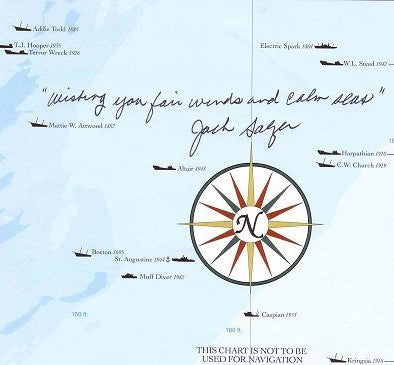 Addie Todd 1884
T.J. Hooper 1935
Terror Wreck 1926
Electric Spark 1864
W.L. Steed 1942
"Wishing you fair winds and calm seas"
Jack Salzer
Mattie W. Attwood 1897
Harpathian 1918
C.W. Church 1918
Altair 1943
N
Boston 1895
St. Augustine 1944
Muff Diver 1942
Caspian 1931
150 ft.
160 ft.
THIS CHART IS NOT TO BE
USED FOR NAVIGATION
Kringsja 1918